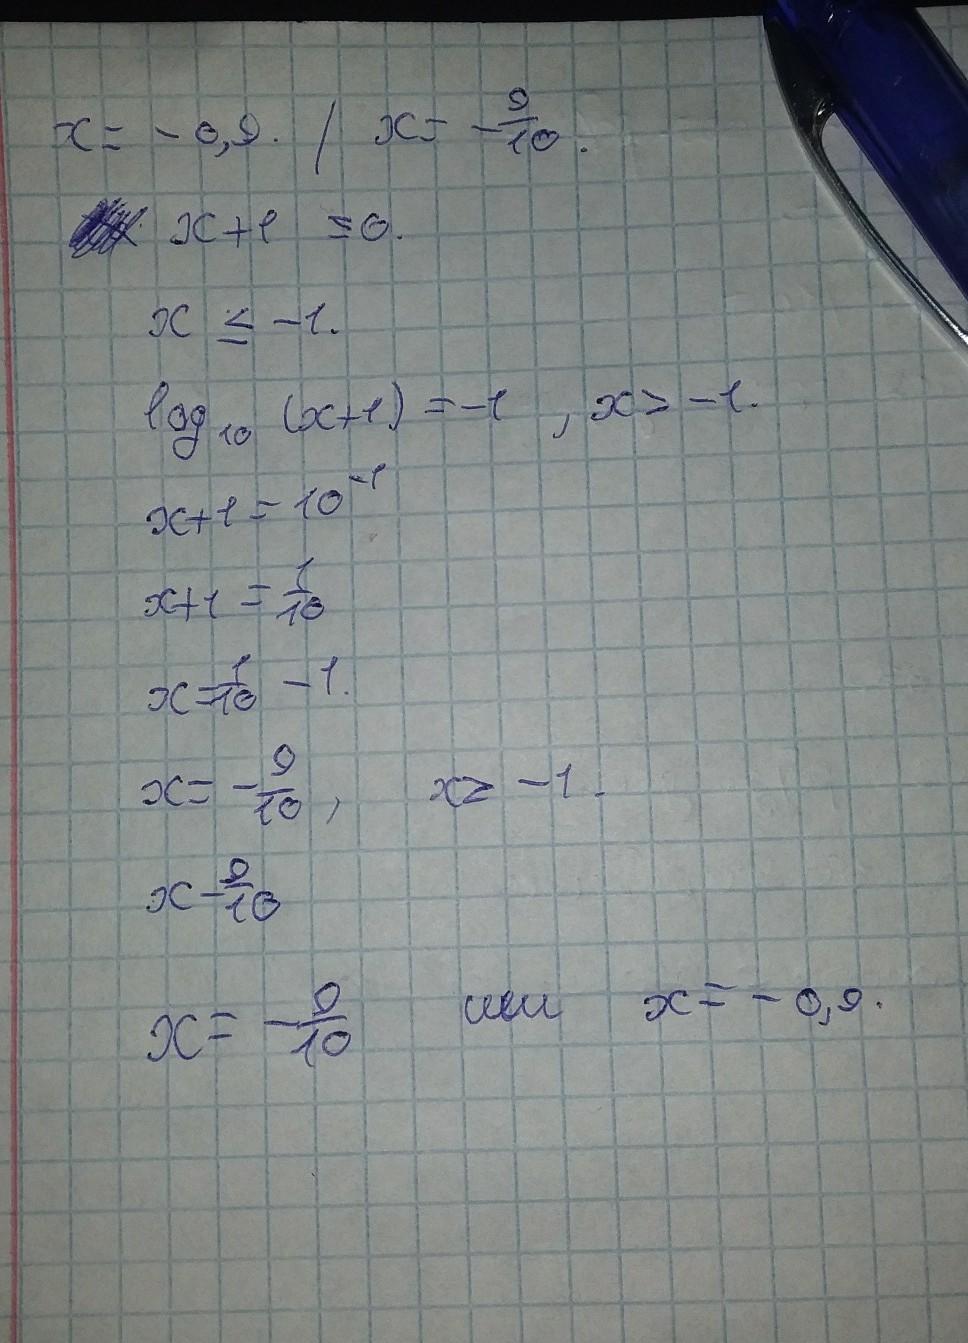 x = - 0,9. / x = - 9/10.
x+1 ≤ 0.
x ≤ -1.
log₁₀ (x+1) = -1 , x > -1.
x+1 = 10⁻¹
x+1 = 1/10
x = 1/10 - 1.
x = - 9/10 , x > -1.
x - 9/10
x = - 9/10 или x = - 0,9.